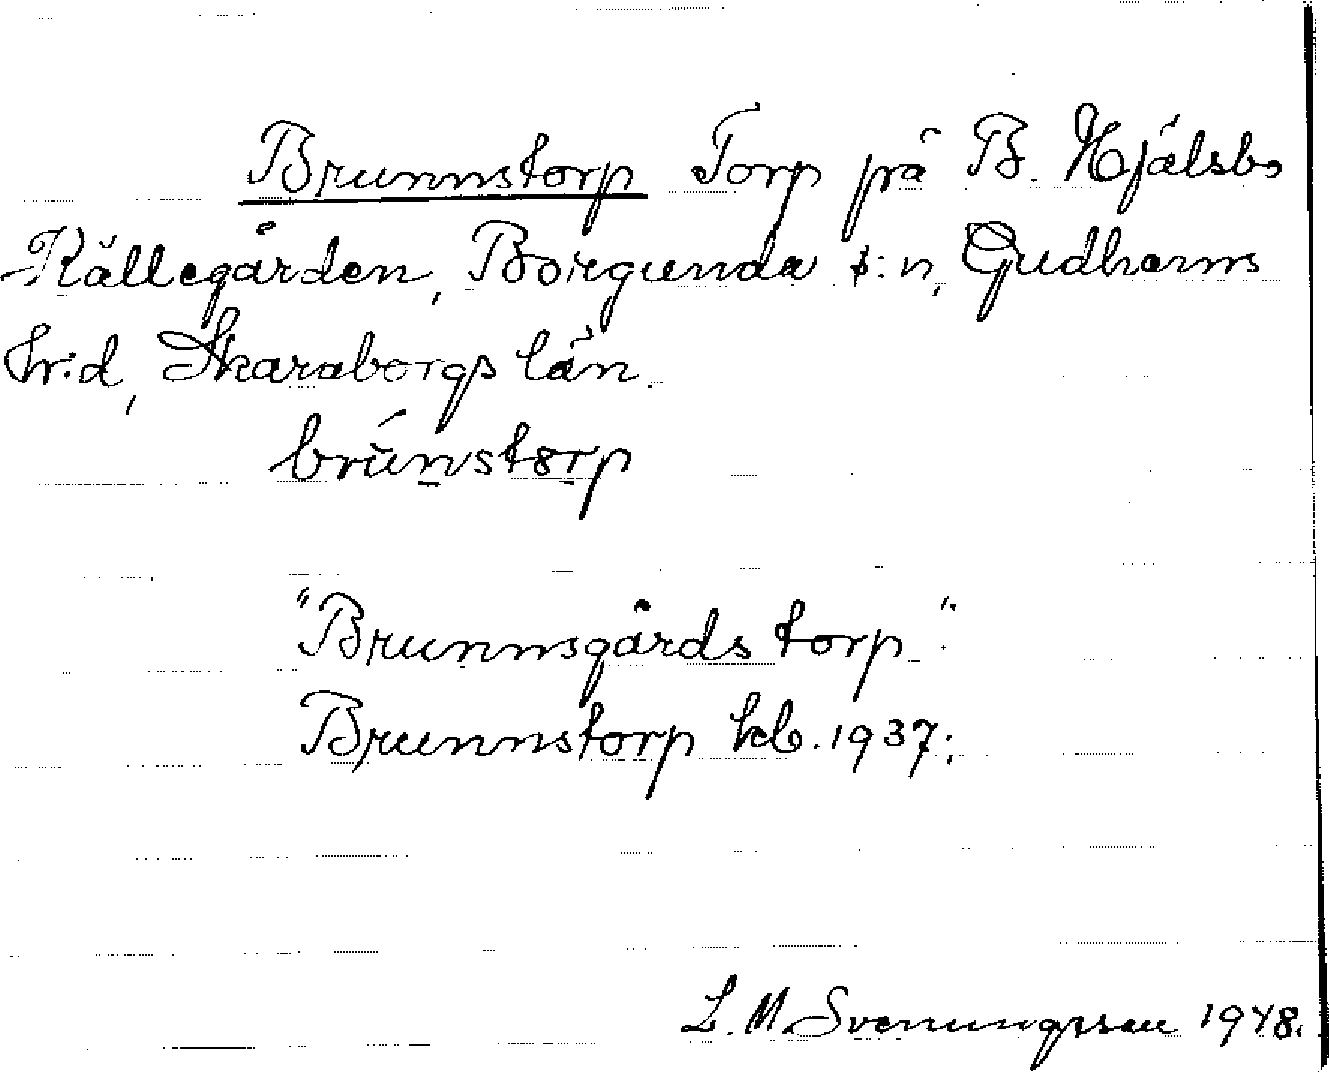 Brunnstorp Torp på B. Hjälsbo
Källegården, Borgunda s:n, Gudhems
hr:d, Skaraborgs län.
brúnstorp
"Brunnsgårds torp."
Brunnstorp kb. 1937;
L. M. Svenungsson 1948.